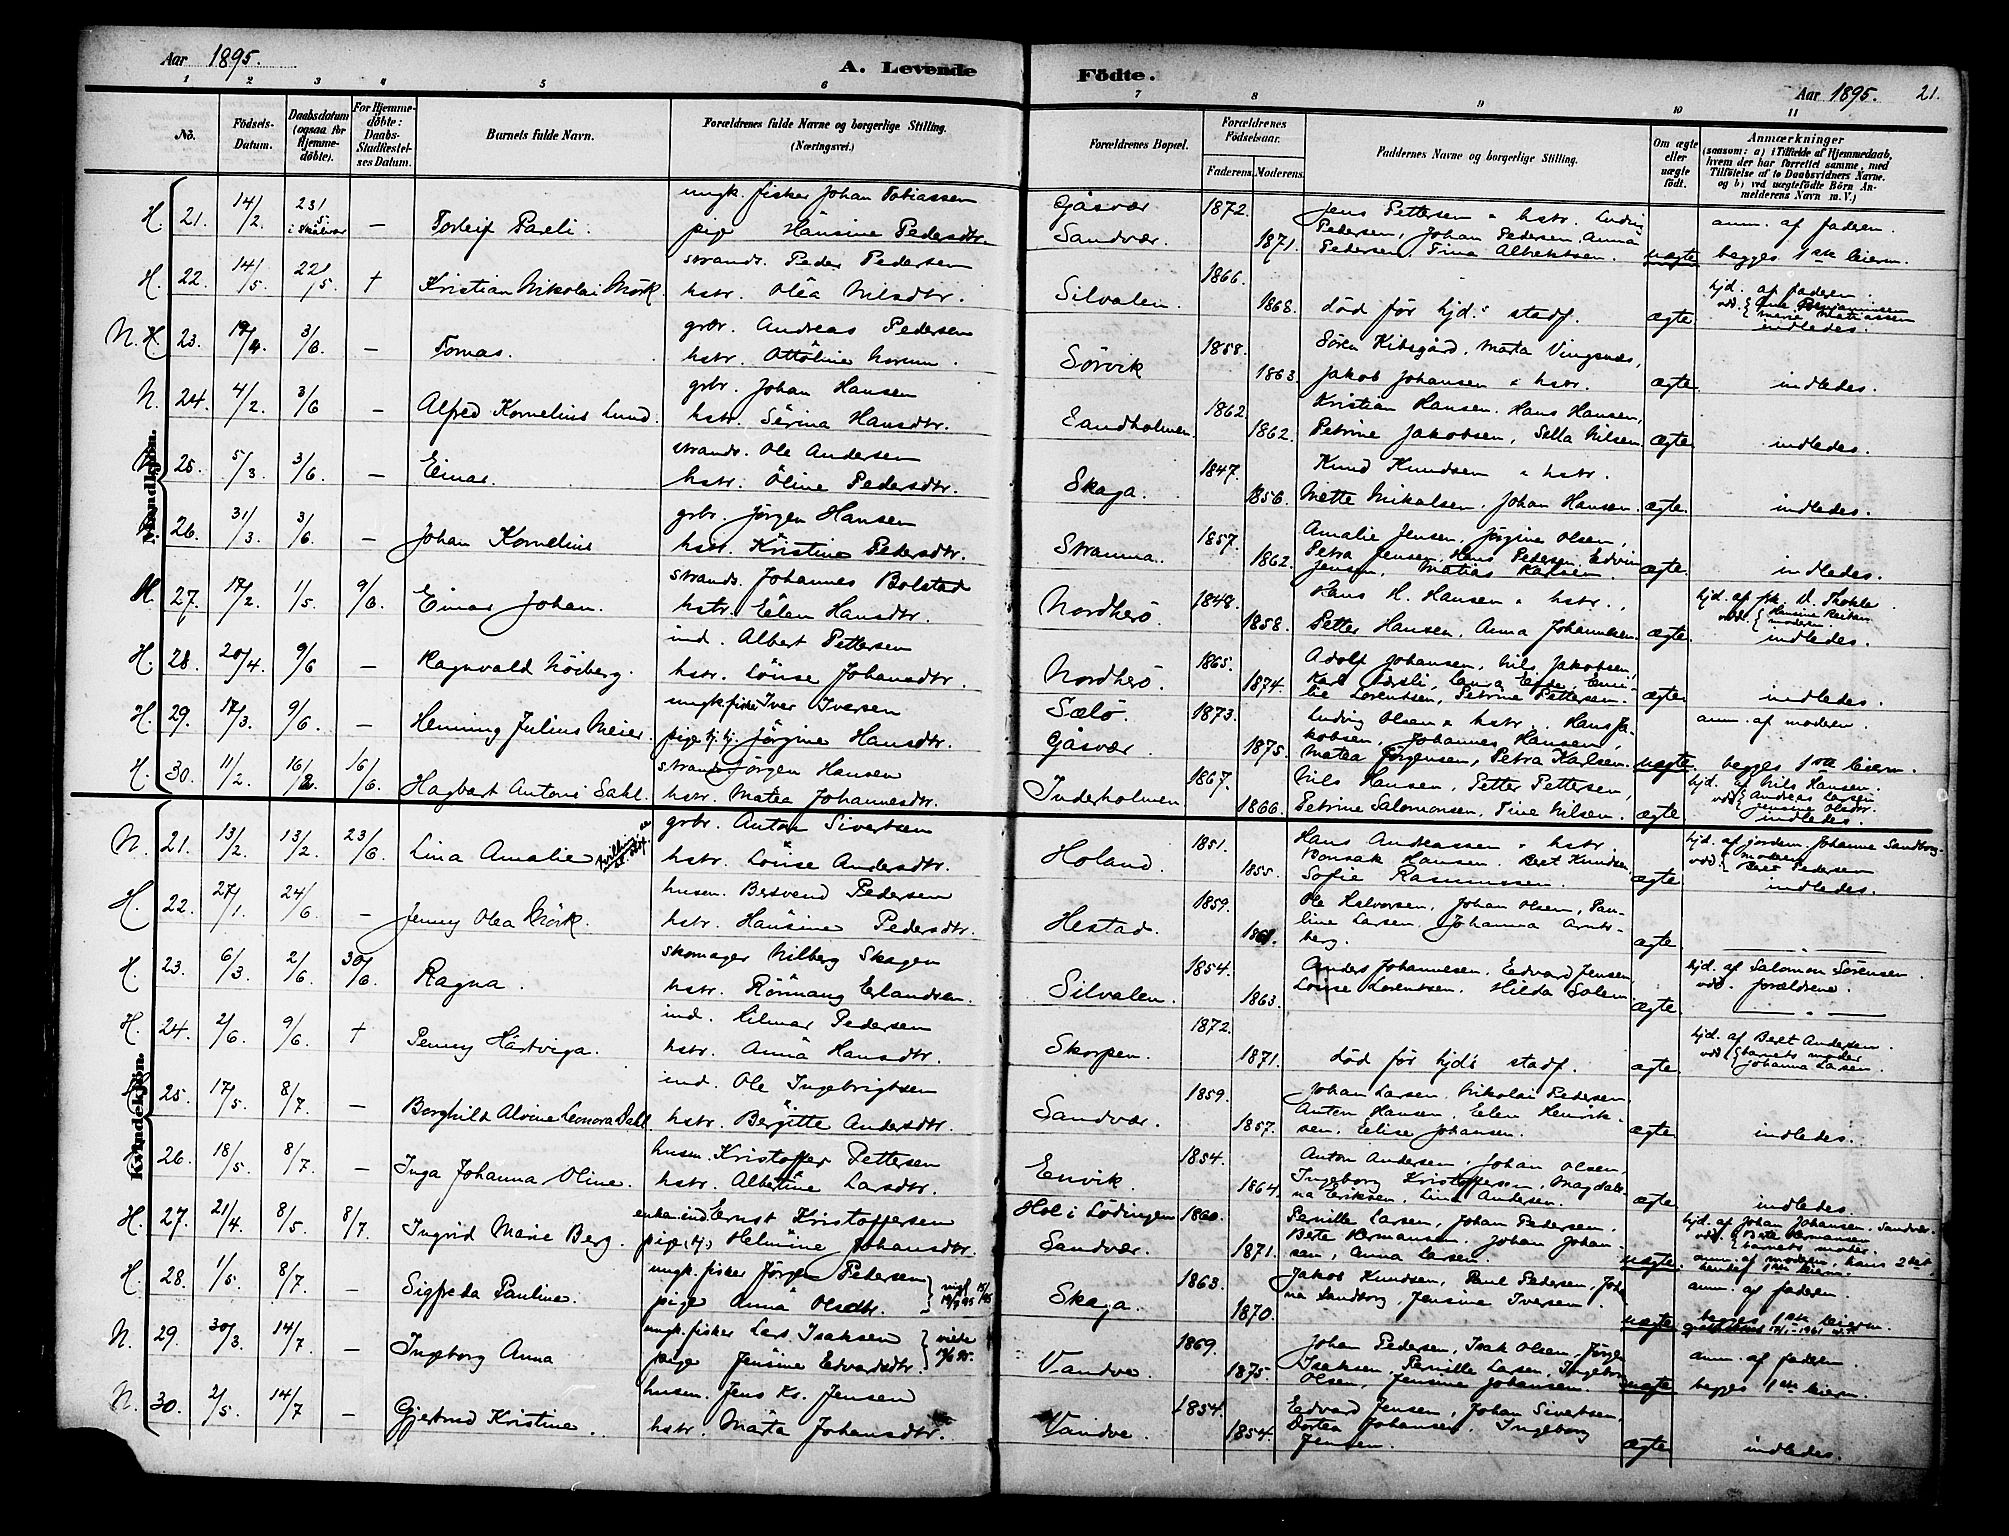 Aar 1895.
A. Levende Födte.
Aar 1895. 21.
1 2 3 4 5 6 7 8 9 10 11
No.
Födsels-Datum.
Daabsdatum (ogsaa for Hjemme-døbte).
For Hjemme-døbte: Daabs-Stadfæstel-ses Datum.
Barnets fulde Navn.
Forældrenes fulde Navne og borgerlige Stilling.
(Næringsvei.)
Forældrenes Bopæl.
Forældrenes Födselsaar.
Faderens. Moderens.
Faddernes Navne og borgerlige Stilling.
Om ægte eller uægte født.
Anmærkninger
(saasom: a) i Tilfælde af Hjemmedaab,
hvem der har forrettet samme, med
Tilføielse af to Daabsvidners Navne.
og b) ved uægtefødte Børn An-
melderens Navn m. V.)
Mandkjön.
H. 21. 14/2. 23/5. — Torleif Pareli.
ungk. fisker Johan Tobiassen
pige Hansine Pedersdtr.
Gåsvær 1872.
Sandvær. 1871.
Jens Pettersen & hstr. Ludvig
Pedersen, Johan Pedersen, Anna
Pedersen, Tina Albertsen. uægte
anm. af faderen.
begges 1ste leierm.
H. 22. 14/5. 22/5. † Kristian Nikolai Mörk.
strands. Peder Pedersen
hstr. Olea Nilsdtr.
Silvalen. 1866. 1868. död før hjd.s stadf. ægte
hjd. af faderen.
indledes.
N. 23. 3/6 — Tomas.
grbr. Andreas Pedersen
hstr. Ottöline
Sörvik 1858. 1863.
Sören Kibsgård, Marta Vingsnæs,
Jakob Johansen & hstr. ægte indledes.
N. 24. 4/2. 3/6 — Alfred Kornelius Lund.
grbr. Johan Hansen
hstr. Sërina Hansdtr.
Landholmen. 1862. 1862.
Kristian Hansen. Hans Hansen,
Petrine Jakobsen, Sella Nilsen. ægte indledes.
25. 5/3 3/6. — Einar.
strands. Ole Andersen
hstr. Oline Pedersdtr.
Skaga. 1847. 1856.
Knud Knudsen & hstr.
Mette Nikolsen. Johan Hansen. ægte. indledes.
26. 31/3. 3/6. — Johan Kornelius
grbr. Jörgen Hansen
hstr. Kristine Pedersdtr.
Stranna. 1857. 1862.
Amalie Jensen, Jörgine Olsen,
Petra Jensen, Hans Pedersen, Edvin
Jensen, Matias Karlsen. ægte. indledes.
H 27. 17/2. 1/5. 9/6. Einar Johan.
strands. Johannes Bolstad
hstr. Elen Hansdtr.
Nordherö. 1848. 1858.
Hans H. Hansen & hstr.,
Petter Hansen, Anna Johannesen ægte.
indledes.
H. 28. 20/4. 9/6 — Ragnvald Nöiberg.
ind. Albert Pettersen
hstr. Lovise Johansdtr.
Nordherö. 1865. 1874.
Adolf Johansen, Nils Jakobsen,
Lorentsen, Petrine Pettersen. ægte indledes.
H. 29. 17/3. 9/6. — Henning Julius Meier.
ungk. fisker Iver Iversen
pige tj. tj. Jörgine Hansdtr.
Sælö. 1873.
Gåsvær. 1875.
Ludvig Olsen & hstr., Hans Ja-
kobsen, Johannes Hansen,
Matea Jörgensen, Petra Karlsen. uægte
anm. af moderen.
begges 1ste leierm.
H. 30. 11/2. 16/6. Hagbart Antoni Sahl.
strands. Jörgen Hansen
hstr. Matea Johannesdtr.
Inderholmen 1867. 1866.
Nils Hansen, Petter Pettersen,
Petrine Salomonsen, Tine Nilsen. ægte
hjd. af Nils Hansen.
vdd. Andreas Larsen
Jensine Olsdtr.
indledes.
Kvindekjön.
N. 21. 13/2. 13/2. 23/6. Lina Amalie
grbr. Anton Sivertsen
hstr. Lovise Andersdtr.
Holand. 1851. 1855.
Hans Andreassen & hstr.
Ronsak Hansen. Beret Knudsen,
Sofie Rasmussen. ægte
hjd. af jordem. Johanna Sandberg.
vdd. moderen
Beret Pedersen
indledes.
H. 22. 27/1. 24/6. — Jenny Olea Mörk.
husm. Bersvend Pedersen
hstr. Hansine Pedersdtr.
Hestad. 1859. 1861.
Ole Halvorsen, Johan Olsen, Pau-
line Larsen, Johanna Arnts-
berg. ægte
H. 23. 6/3. 2/6. 30/6. Ragna.
skomager Nilberg Skagen
hstr. Rönnaug Erlandsen.
Silvalen. 1854. 1863.
Anders Johannesen, Edvard Jensen
Lovise Lorentsen. Hilda Solem. ægte
hjd. af Salomon Sörensen.
vdd. forældrene.
H. 24. 2/6. 9/6. † Penny Hartviga.
ind. Hilmar Pedersen
hstr. Anna Hansdtr.
Skorpen. 1872. 1871. död før hjds stadf. ægte.
hjd. af Beret Andersen.
vdd. barnets moder
Johanna Larsen.
25. 17/5. 8/7. — Borghild Alvine Leonora Dahl.
ind. Ole Ingebrigtsen
hstr. Bergitte Andersdtr.
Sandvær. 1859. 1857.
Johan Larsen. Nikolai Pedersen
Anton Hansen, Elen Henrik-
sen, Elise Johansen. ægte indledes.
26. 18/5. 8/7. — Inga Johanna Oline.
husm. Kristoffer Pettersen
hstr. Albertine Larsdtr.
Envik. 1854. 1864.
Anton Andersen, Johan Olsen,
Ingeborg Kristoffersen, Magdale-
na Eriksen, Lina Andersen. ægte indledes.
H. 27. 21/4. 8/5. 8/7. Ingrid Marie Berg.
enkem. ind. Ernst Kristoffersen
pige (tj) Helmine Johansdtr.
Hol i Lödingen 1860.
Sandvær. 1871.
Pernille Larsen, Johan Pedersen.
Berte Hermansen. Johan Johan-
sen, Anna Larsen. uægte.
hjd. af Johan Johansen. Sandvær.
vdd. Berte Hermansen
barnets moder.
anm. af moderen, hans 2det,
hendes 1ste leierm.
H 28. 1/5. 8/7. — Sigfreda Pauline.
ungk. fisker Jörgen Pedersen
pige Anna Olsdtr.
Skaga. 1863. 1870.
Jakob Knudsen, Paul Pedersen, Joha-
na Sandberg, Jensine Iversen. uægte
anm. af faderen.
begges 1ste leierm.
N. 29. 30/3. 14/7. — Ingeborg Anna
ungk. fisker Lars Isaksen
pige Jensine Edvardsdtr. viede
Vandve. 1869. 1875.
Johan Pedersen, Isak Olsen, Jörgen
Isaksen, Pernille Larsen, Ingeborg
Olsen, Jensine Johansen. uægte
anm. af faderen.
begges 1ste leierm.
N. 30. 2/5. 14/7 — Gjertrud Kristine.
husm. Jens Kr. Jensen
hstr. Marta Johansdtr.
Vandve. 1854. 1854.
Edvard Jensen, Johan Sivertsen,
Dortea Johansen, Ingeborg
Jensen. ægte indledes.